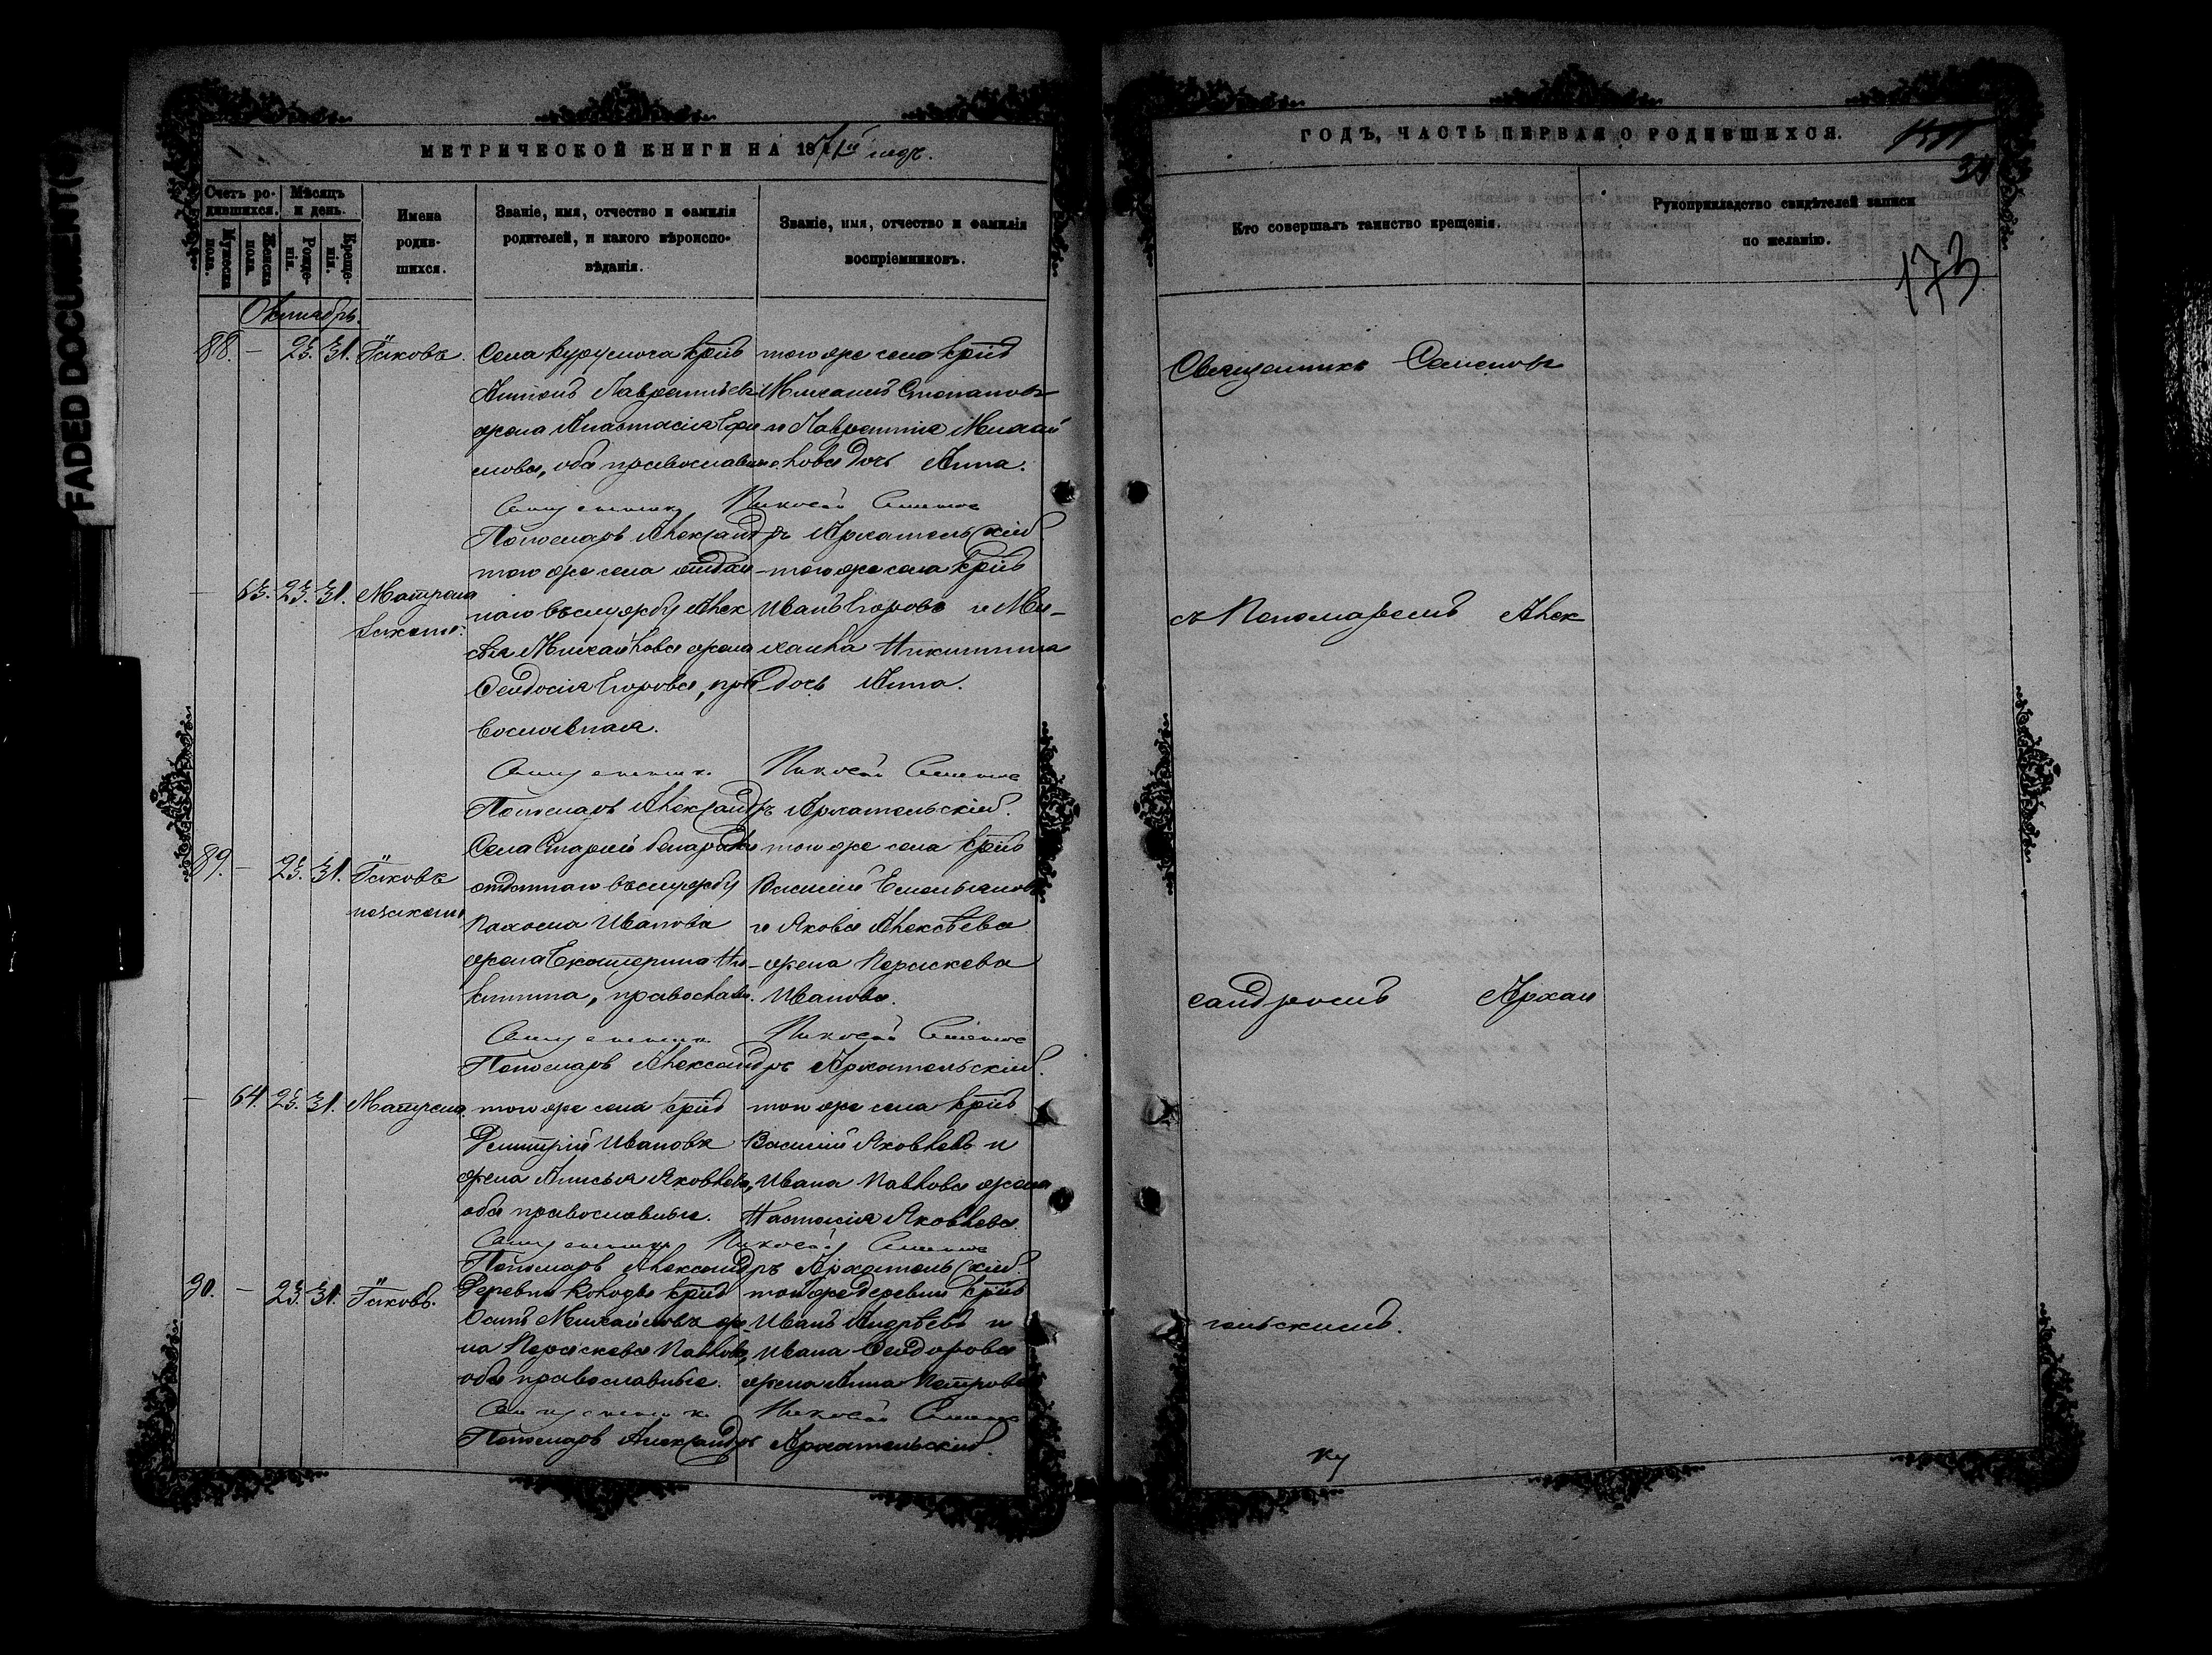 FADED DOCUMENT(S)
МЕТРИЧЕСКОЙ КНИГИ НА 1871й годъ.
Счетъ родившихся.
Мѣсяцъ и день.
Мужеска пола.
Женска пола.
Рожденія.
Крещенія.
Имена родившихся.
Званіе, имя, отчество и фамилія
родителей, и какого вѣроисповѣданія.
Званіе, имя, отчество и фамилія
воспріемниковъ.
Октябрь.
88. — 23. 31. Іаковъ.
Села крнъ
Антонъ Лаврентьевъ
жена Анастасія Ефи
мова, оба православные
того же села крнъ
Михаилъ Степановъ
и Лаврентія Михай
лова дочь Анна.
Священникъ Николай Семенов
Пономарь Александръ Архангельскій
— 63. 23. 31. Матрона
законно.
того же села отдан
наго въ службу Алек
сѣя Михайлова жена
Феодосія Егорова, пра
вославная.
того же села крнъ
Иванъ Егоровъ и Ми-
хаила Никитина
дочь Анна.
Священникъ Николай Семенов
Пономарь Александръ Архангельскій.
89. — 23. 31. Іаковъ
незаконно
Села Старой
отданнаго въ службу
Пахома Иванова
жена Екатерина Ни-
китина, православн.
того же села крнъ
Василій Емельяновъ
и Якова Алексѣева
жена Параскева
Иванова.
Священникъ Николай Семенов
Пономарь Александръ Архангельскій.
— 64. 23. 31. Матрона.
того же села крнъ
Димитрій Ивановъ
жена Анисья Яковлева,
оба православные.
того же села крнъ
Василій Яковлевъ и
Ивана Павлова жена
Настасія Яковлева.
Священникъ Николай Семенов
Пономарь Александръ Архангельскій.
90. — 23. 31. Іаковъ.
Деревни крнъ
Осипъ Михайловъ же
на Параскева Павлова,
оба православные.
той же деревни крнъ
Иванъ Андрѣевъ и
Ивана Феодорова
жена Анна Петрова
Священникъ Николай Семенов
Пономарь Александръ Архангельскій.
ГОДЪ, ЧАСТЬ ПЕРВАЯ О РОДИВШИХСЯ.
173
Кто совершалъ таинство крещенія.
Рукоприкладство свидѣтелей записи
по желанію.
Священникъ Семеновъ
съ Пономаремъ Алек
сандромъ Архан
гельскимъ.